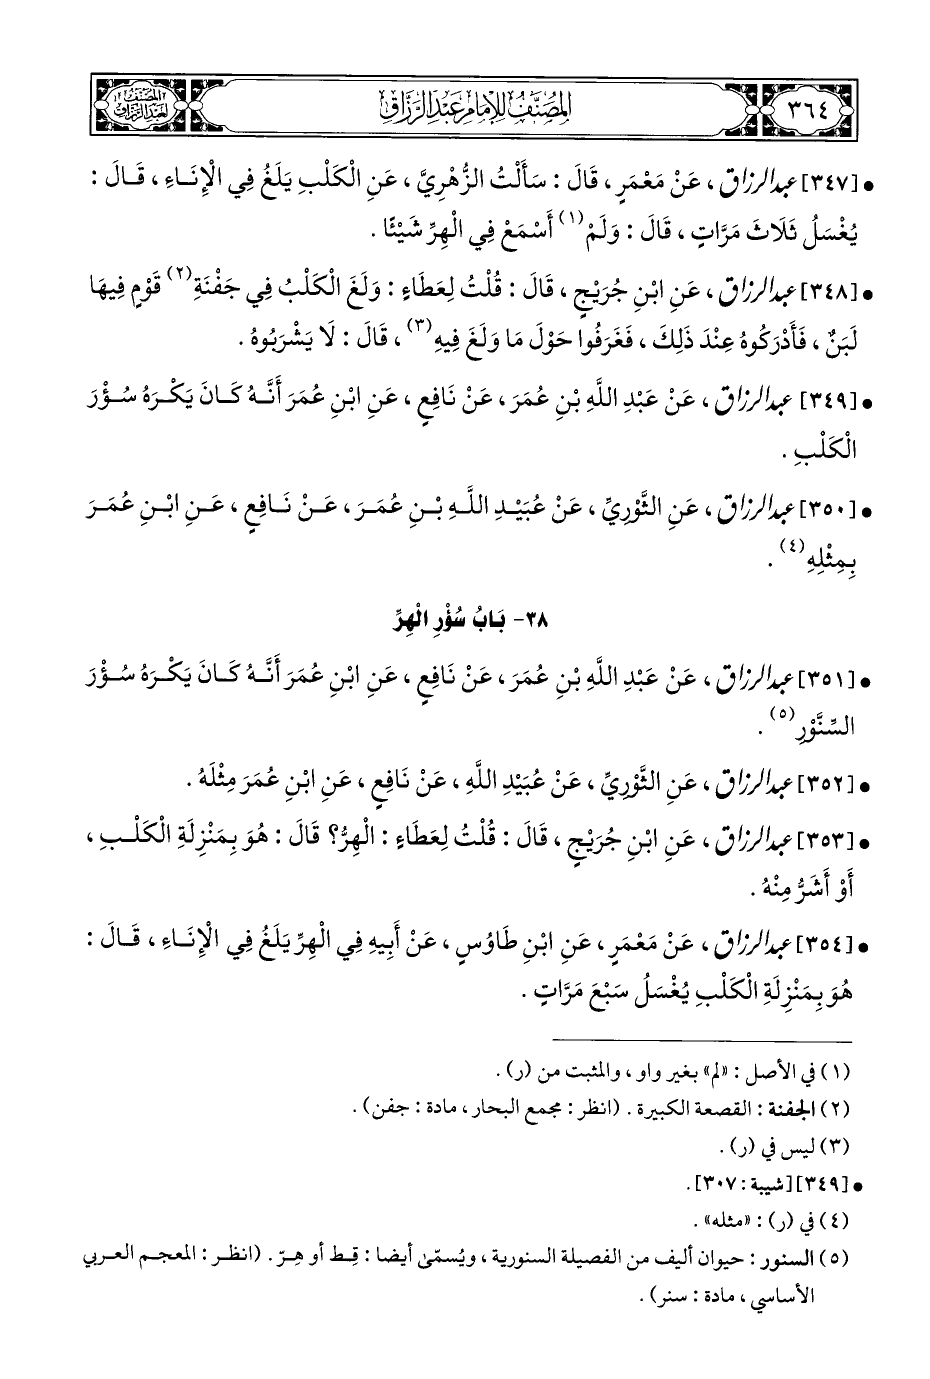 ٣٦٤
المُصَنَّفُ لِلإِمَامِ عَبْدِ الرَّزَّاقِ
المصنف
لعبد الرزاق
• [٣٤٧] عبد الرزاق ، عَنْ مَعْمَرٍ ، قَالَ : سَأَلْتُ الزُّهْرِيَّ ، عَنِ الْكَلْبِ يَلَغُ فِي الْإِنَاءِ ، قَالَ :
يُغْسَلُ ثَلَاثَ مَرَّاتٍ ، قَالَ : وَلَمْ(١) أَسْمَعْ فِي الْهِرِّ شَيْئًا .
• [٣٤٨] عبد الرزاق ، عَنِ ابْنِ جُرَيْجٍ ، قَالَ : قُلْتُ لِعَطَاءٍ : وَلَغَ الْكَلْبُ فِي جَفْنَةِ(٢) قَوْمٍ فِيهَا
لَبَنٌ ، فَأَدْرَكُوهُ عِنْدَ ذَلِكَ ، فَغَرَفُوا حَوْلَ مَا وَلَغَ فِيهِ(٣) ، قَالَ : لَا يَشْرَبُوهُ .
• [٣٤٩] عبد الرزاق ، عَنْ عَبْدِ اللَّهِ بْنِ عُمَرَ ، عَنْ نَافِعٍ ، عَنِ ابْنِ عُمَرَ أَنَّهُ كَانَ يَكْرَهُ سُؤْرَ
الْكَلْبِ .
• [٣٥٠] عبد الرزاق ، عَنِ الثَّوْرِيِّ ، عَنْ عُبَيْدِ اللَّهِ بْنِ عُمَرَ ، عَنْ نَافِعٍ ، عَنِ ابْنِ عُمَرَ
بِمِثْلِهِ(٤) .
٣٨- بَابُ سُؤْرِ الْهِرِّ
• [٣٥١] عبد الرزاق ، عَنْ عَبْدِ اللَّهِ بْنِ عُمَرَ ، عَنْ نَافِعٍ ، عَنِ ابْنِ عُمَرَ أَنَّهُ كَانَ يَكْرَهُ سُؤْرَ
السِّنَّوْرِ(٥) .
• [٣٥٢] عبد الرزاق ، عَنِ الثَّوْرِيِّ ، عَنْ عُبَيْدِ اللَّهِ ، عَنْ نَافِعٍ ، عَنِ ابْنِ عُمَرَ مِثْلَهُ .
• [٣٥٣] عبد الرزاق ، عَنِ ابْنِ جُرَيْجٍ ، قَالَ : قُلْتُ لِعَطَاءٍ : الْهِرُّ؟ قَالَ : هُوَ بِمَنْزِلَةِ الْكَلْبِ ،
أَوْ أَشَرُّ مِنْهُ .
• [٣٥٤] عبد الرزاق ، عَنْ مَعْمَرٍ ، عَنِ ابْنِ طَاوُسٍ ، عَنْ أَبِيهِ فِي الْهِرِّ يَلَغُ فِي الْإِنَاءِ ، قَالَ :
هُوَ بِمَنْزِلَةِ الْكَلْبِ يُغْسَلُ سَبْعَ مَرَّاتٍ .
(١) في الأصل : «لم» بغير واو ، والمثبت من (ر) .
(٢) الجفنة : القصعة الكبيرة . (انظر : مجمع البحار ، مادة : جفن) .
(٣) ليس في (ر) .
• [٣٤٩] [شيبة : ٣٠٧] .
(٤) في (ر) : «مثله» .
(٥) السنور : حيوان أليف من الفصيلة السنورية ، ويُسمّىٰ أيضا : قِط أو هِرّ . (انظر : المعجم العربي
الأساسي ، مادة : سنر) .